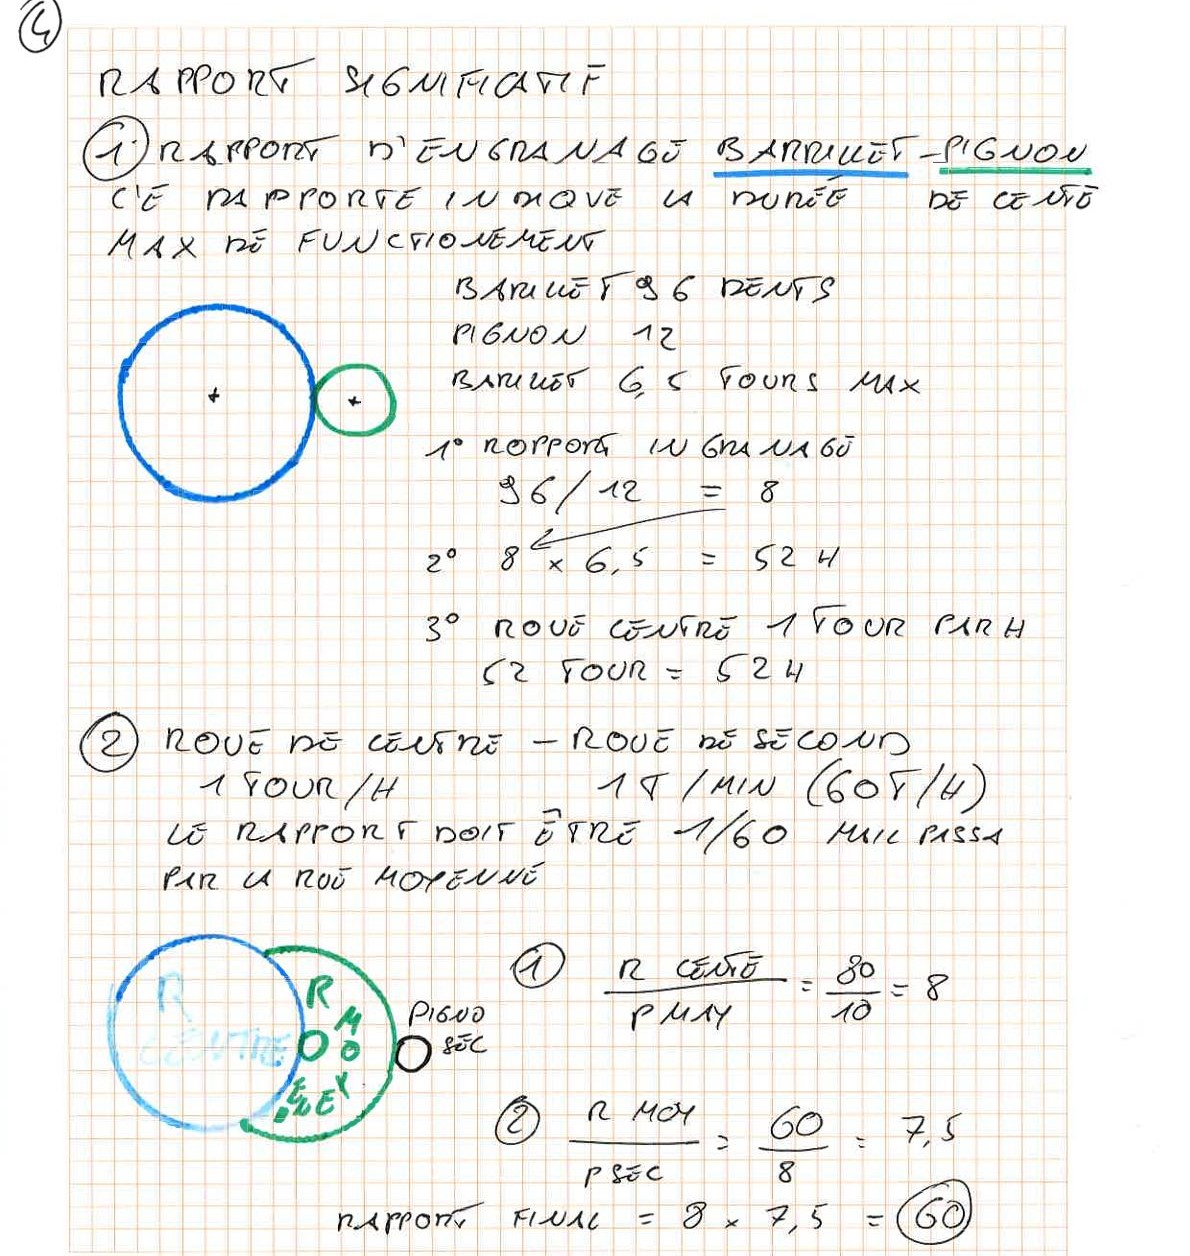 4
RAPPORT SIGNIFICATIF
1 RAPPORT D'ENGRANAGE BARRILLET - PIGNON
C'E RAPPORTE INDIQUE LA DURÉE DE CENTE
MAX DE FUNCTIONEMENT
BARILLET 96 DENTS
PIGNON 12
BARILLET 6,5 TOURS MAX
1° ROPPORT INGRANAGE
96/12 = 8
2° 8 x 6,5 = 52 H
3° ROUE CENTRE 1 TOUR PAR H
52 TOUR = 52 H
2 ROUE DE CENTRE - ROUE DE SECOND
1 TOUR/H 1T/MIN (60T/H)
LE RAPPORT DOIT ÊTRE 1/60 MAIS PASSA
PAR LA ROUE MOYENNE
R CENTRE
R MOYEN
PIGNO SEC
1 R CENTE / P MAY = 80/10 = 8
2 R MOY / P SEC = 60/8 = 7,5
RAPPORT FINAL = 8 x 7,5 = 60